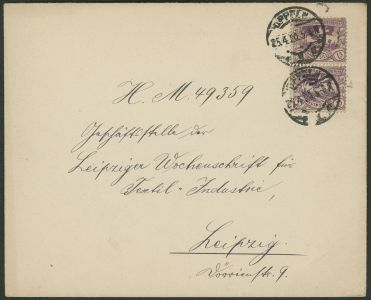 OPPELN
25.4.20.5-6N
H. M. 49359
Geschäftsstelle der
Leipziger Wochenschrift für
Textil-Industrie,
Leipzig.
Dörrienstr. 9.